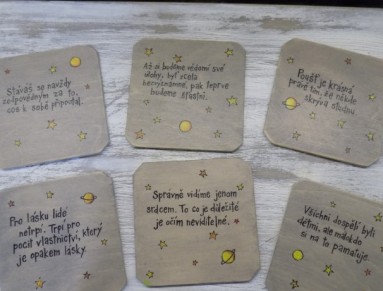 Stáváš se navždy
zodpovědným za to,
cos k sobě připoutal.
Až si budeme vědomi své
úlohy, byť zcela
bezvýznamné, pak teprve
budeme šťastni.
Poušť je krásná
právě tím, že někde
skrývá studnu
Pro lásku lidé
netrpí. Trpí pro
pocit vlastnictví, který
je opakem lásky.
Správně vidíme jenom
srdcem. To co je důležité
je očím neviditelné.
Všichni dospělí byli
dětmi, ale málokdo
si na to pamatuje.